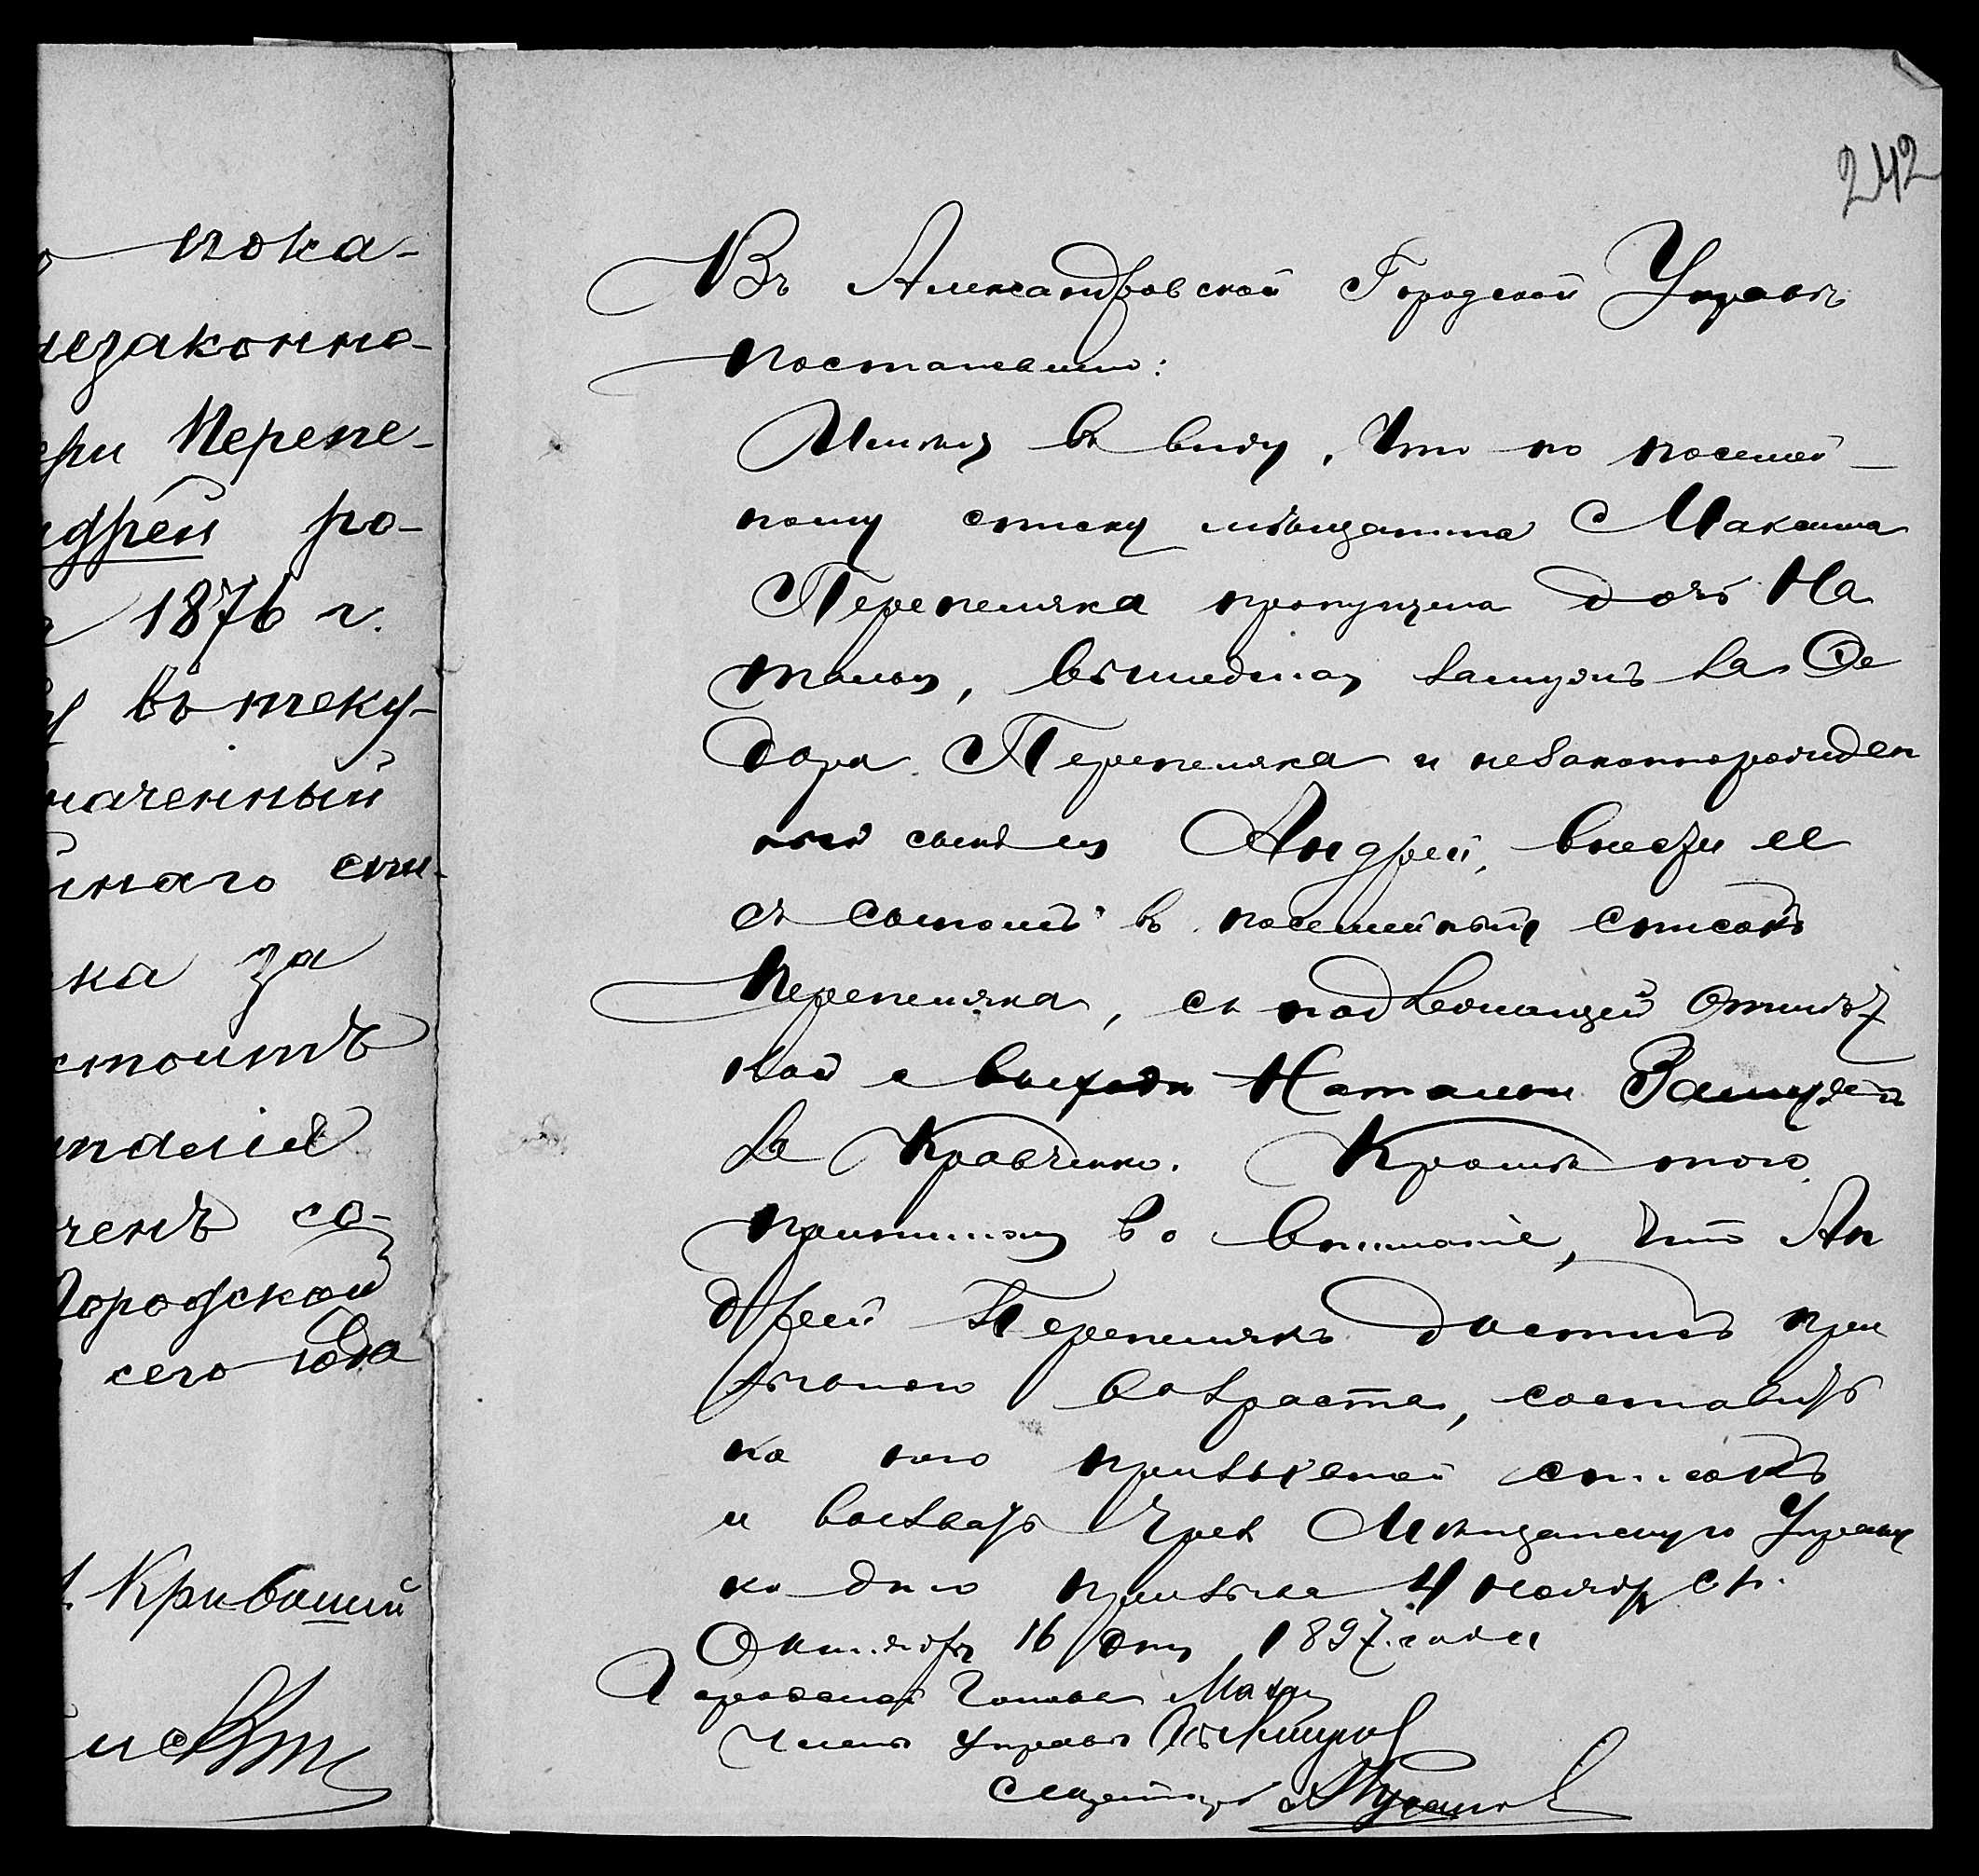 пока-
незаконно-
ери Перепе-
ндрей ро-
1876 г.
въ теку-
наченный
йнаго спи-
ка за
стоитъ
талія
ченъ со-
Городской
сего года
Кривошій
242
Въ Александровской Городской Управѣ
постановлено:
Имѣя въ виду, что по посемей-
ному списку мѣщанина Максима
Перепеляка пропущена дочь На
талья, вышедшая замужъ за Ѳе
дора Перепеляка и незаконнорожден
ный сынъ ея Андрей, внести ее
съ сыномъ въ посемейный списокъ
Перепеляка, съ подлежащей отмѣт
кой о выходѣ Натальи Замужъ
за Кравченко. Кромѣ того,
принимая во вниманіе, что Ан
дрей Перепелякъ достигъ при
зывного возраста, составить
на него призывной списокъ
и вызвать чрез Мѣщанскую Управу
ко дню призыва 4 ноября с.г.
Октября 16 дня 1897 года
Городской Голова
Членъ Управы
Секретарь